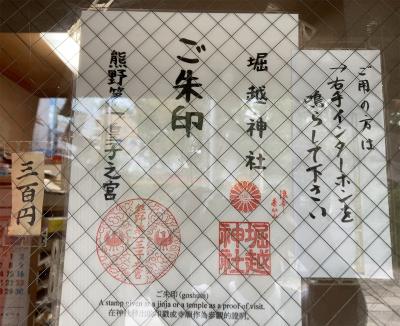 ご用の方は
→右手インターホンを
鳴らして下さい
堀越神社
ご朱印
熊野第一王子之宮
三百円
堀越
神社
ご朱印(goshuin)
A stamp given at a jinja or a temple as a proof of visit.
在神社移出的印戳或寺廟作為參觀的證明。